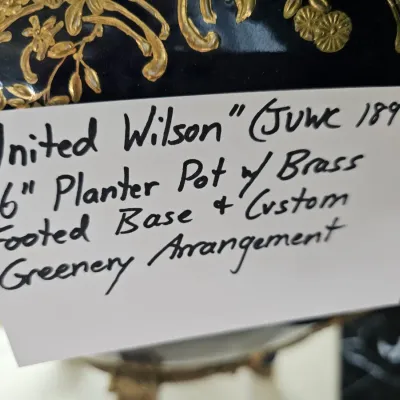 United Wilson" (JUWC 189
6" Planter Pot w/ Brass
Footed Base + Custom
Greenery Arrangement